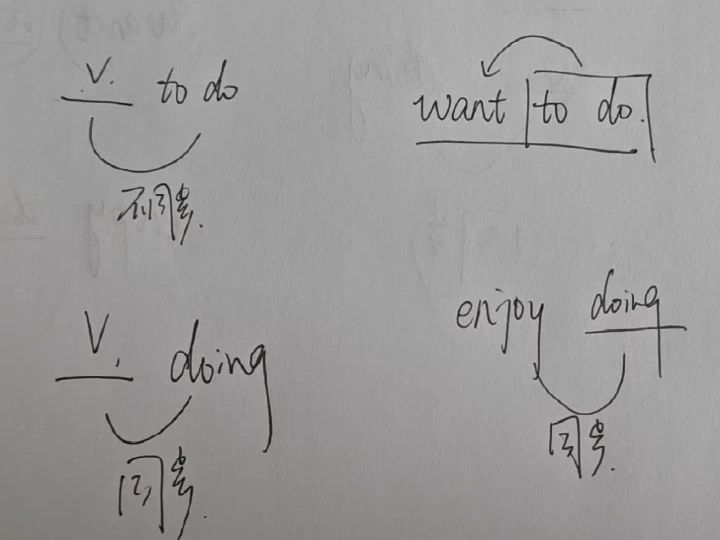 V. to do
不同步.
want to do.
V. doing
同步.
enjoy doing
同步.